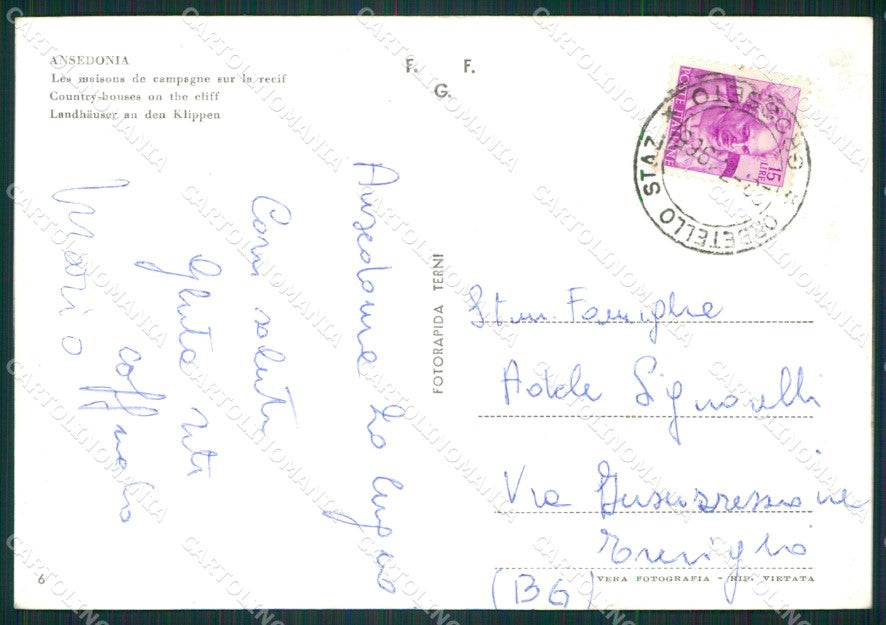 ANSEDONIA
Les maisons de campagne sur le recif
Country-houses on the cliff
Landhäuser an den Klippen
F. F.
G.
POSTE ITALIANE
15 LIRE
ORBETELLO STAZ * GROSSETO *
Ansedonia 20 luglio
Cari saluti
Mario
FOTORAPIDA TERNI
Famiglia
Adele Signorelli
Via
Treviglio
(BG)
VERA FOTOGRAFIA - RIP. VIETATA
6
CARTOLINOMANIA